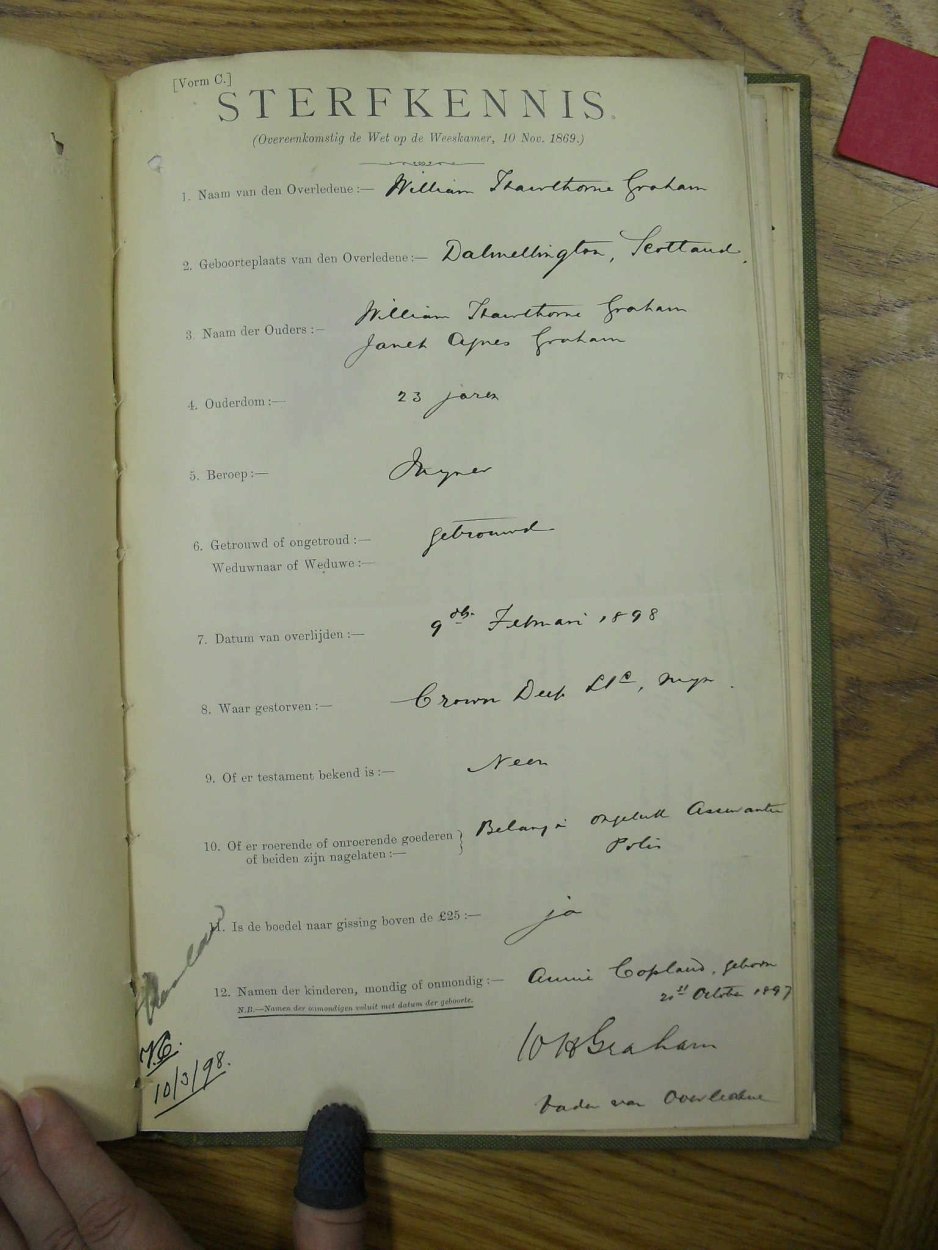 [Vorm C.]
STERFKENNIS.
(Overeenkomstig de Wet op de Weeskamer, 10 Nov. 1869.)
1. Naam van den Overledene:— William Thawthorne Graham
2. Geboorteplaats van den Overledene:— Dalmellington, Scotland,
3. Naam der Ouders:— William Thawthorne Graham
Janet Agnes Graham
4. Ouderdom:— 23 jaren
5. Beroep:— Myner
6. Getrouwd of ongetroud:— getrouwd
Weduwnaar of Weduwe:—
7. Datum van overlijden:— 9de Februari 1898
8. Waar gestorven:— Crown Deep Ltd, myn.
9. Of er testament bekend is:— Neen
10. Of er roerende of onroerende goederen } Belang in ongeluk Assurantie
of beiden zijn nagelaten:— Polis
11. Is de boedel naar gissing boven de £25:— ja
12. Namen der kinderen, mondig of onmondig:— Annie Copland, geboren
N.B.—Namen der onmondigen voluit met datum der geboorte. 21st October 1897
W H Graham
Vader van Overledene
10/3/98.